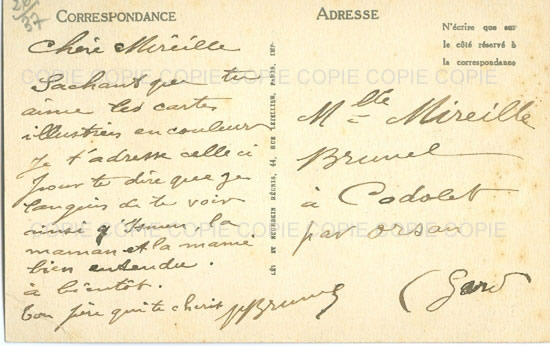 20/5
37
CORRESPONDANCE
Chère Mireille
Sachant que tu
aime les cartes
illustrées en couleur
Je t'adresse celle ci
pour te dire que je
languis de te voir
ainsi q' la
maman et la mamé
bien entendu.
à bientôt.
Ton père qui te cherit Brunel
LÉVY ET NEURDEIN RÉUNIS, 44, RUE LETELLIER, PARIS, IMP.
ADRESSE
N'écrire que sur
le côté réservé à
la correspondance
Mlle Mireille
Brunel
à Codolet
par orsan
(Gard
COPIE COPIE COPIE COPIE COPIE COPIE COPIE
COPIE COPIE COPIE COPIE COPIE COPIE COPIE